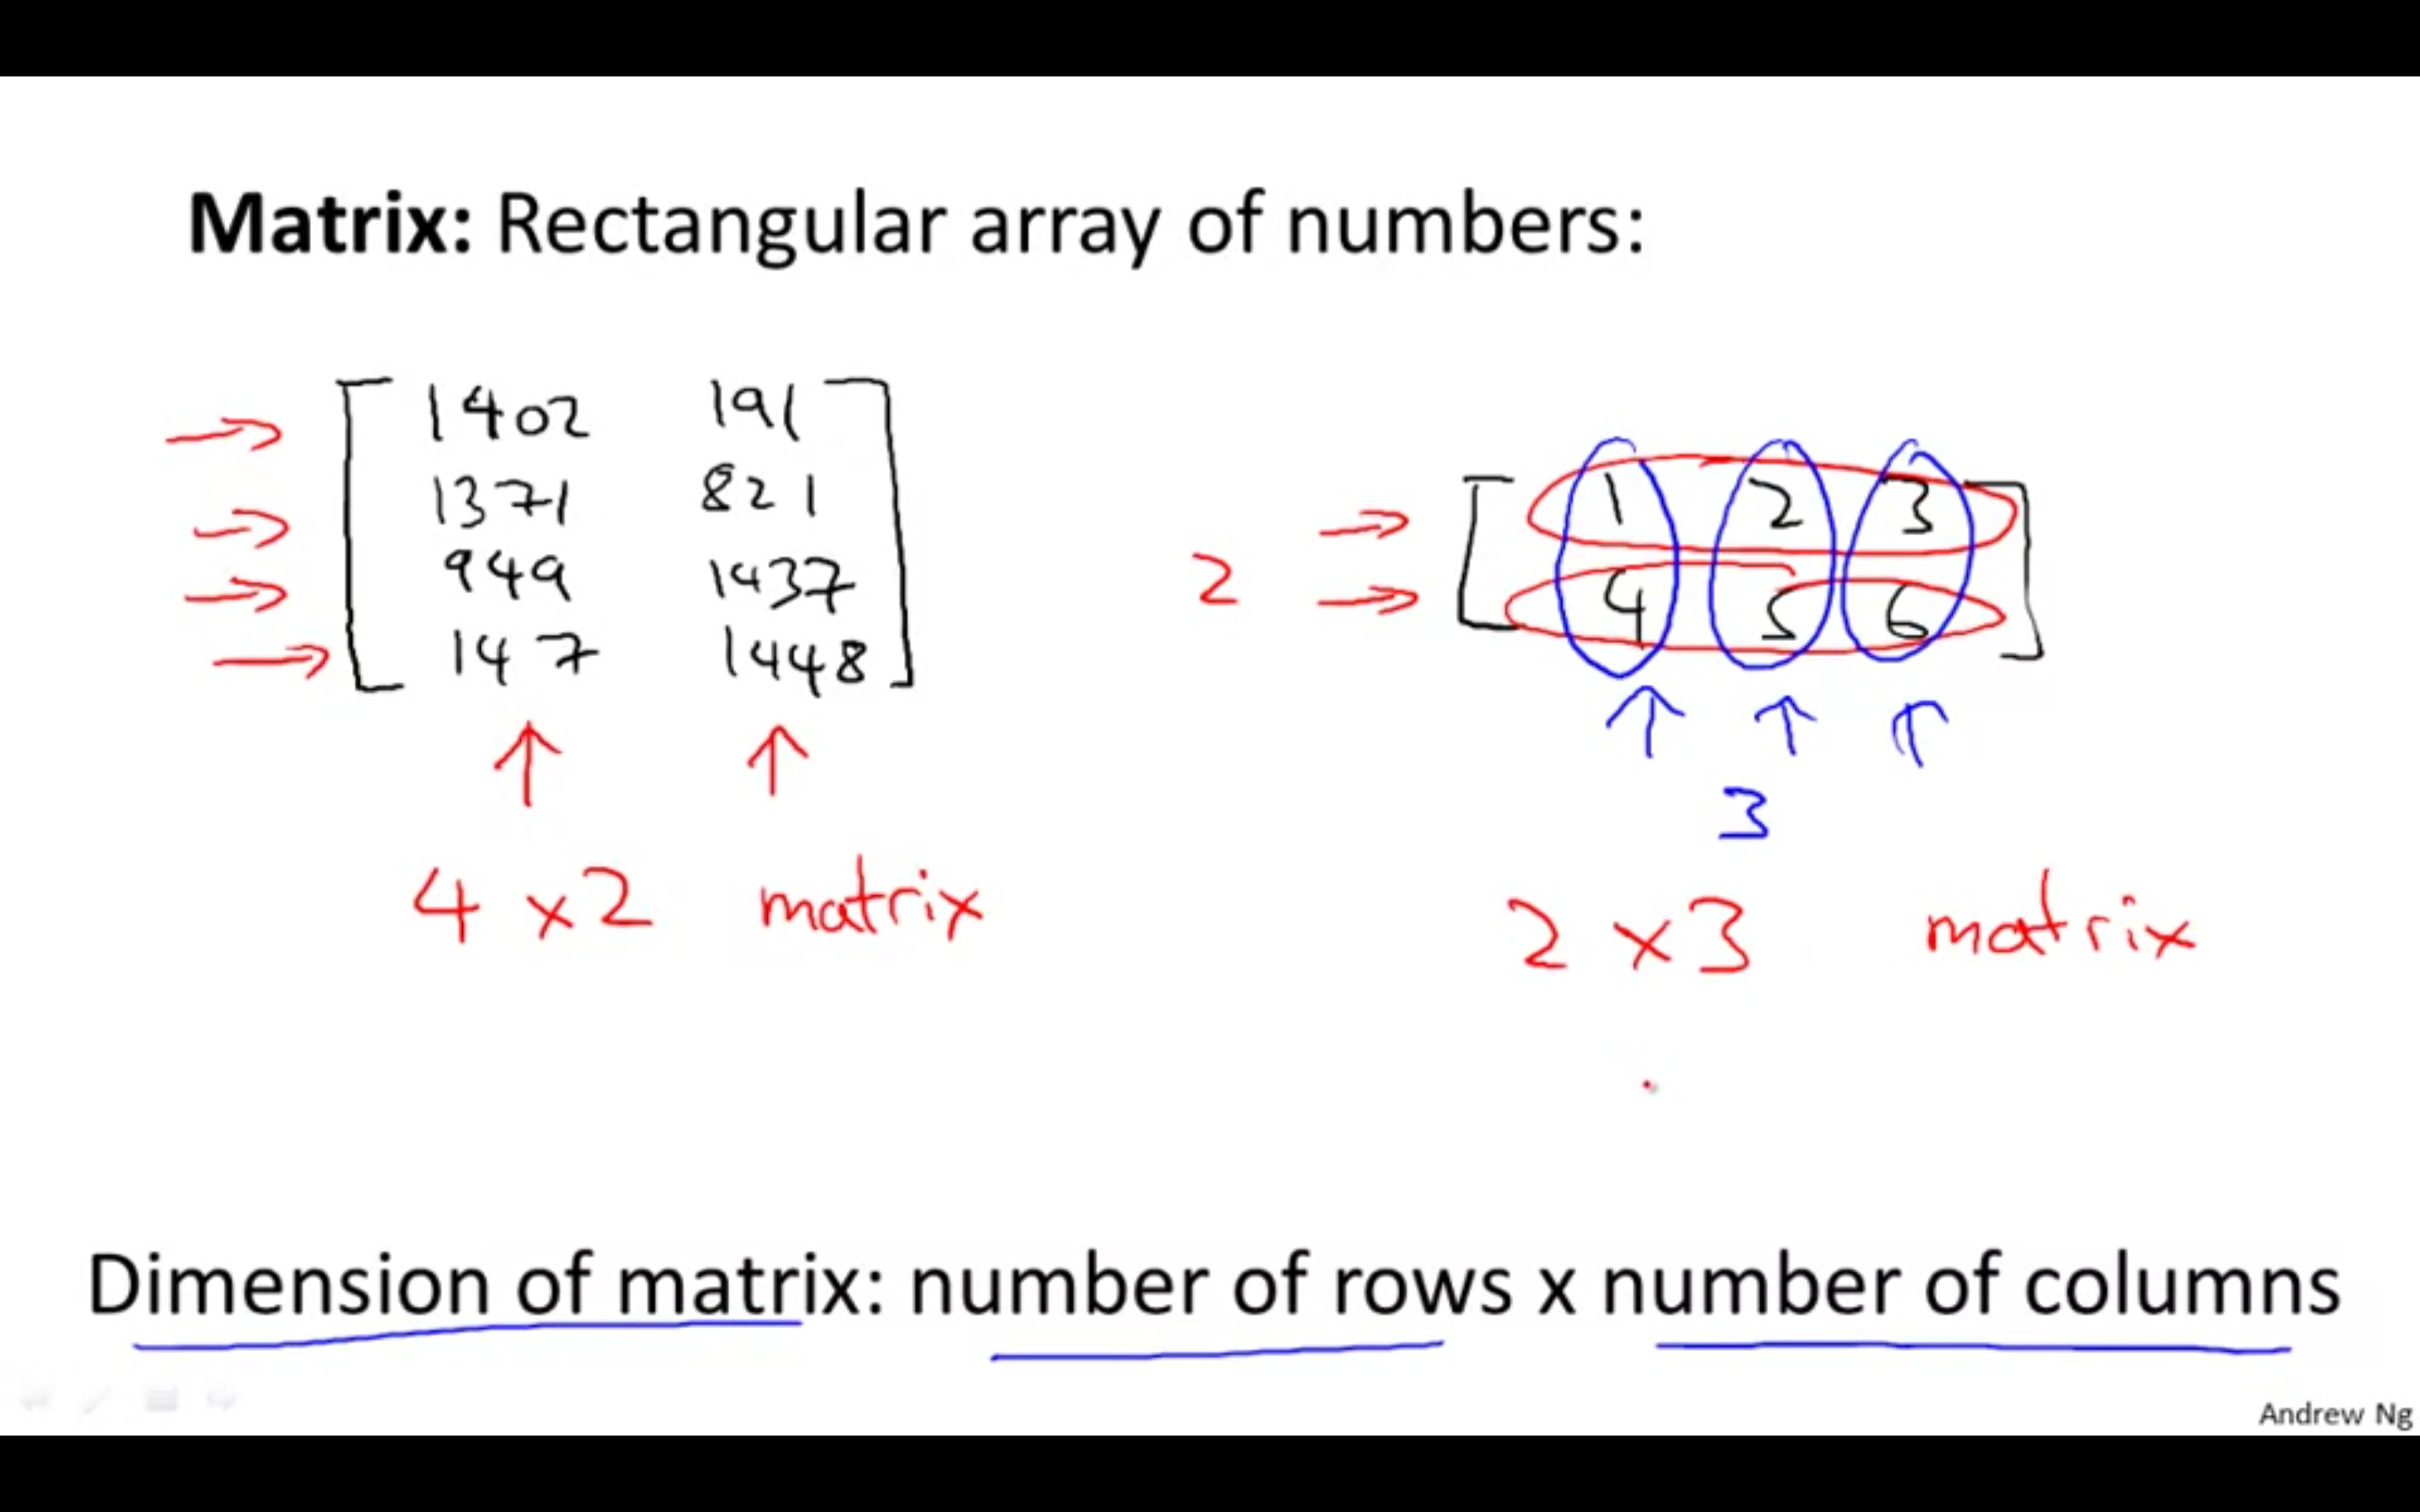 Matrix: Rectangular array of numbers:
1402 191
1371 821
949 1437
147 1448
4 x 2 matrix
1 2 3
2
4 5 6
3
2 x 3 matrix
Dimension of matrix: number of rows x number of columns
Andrew Ng